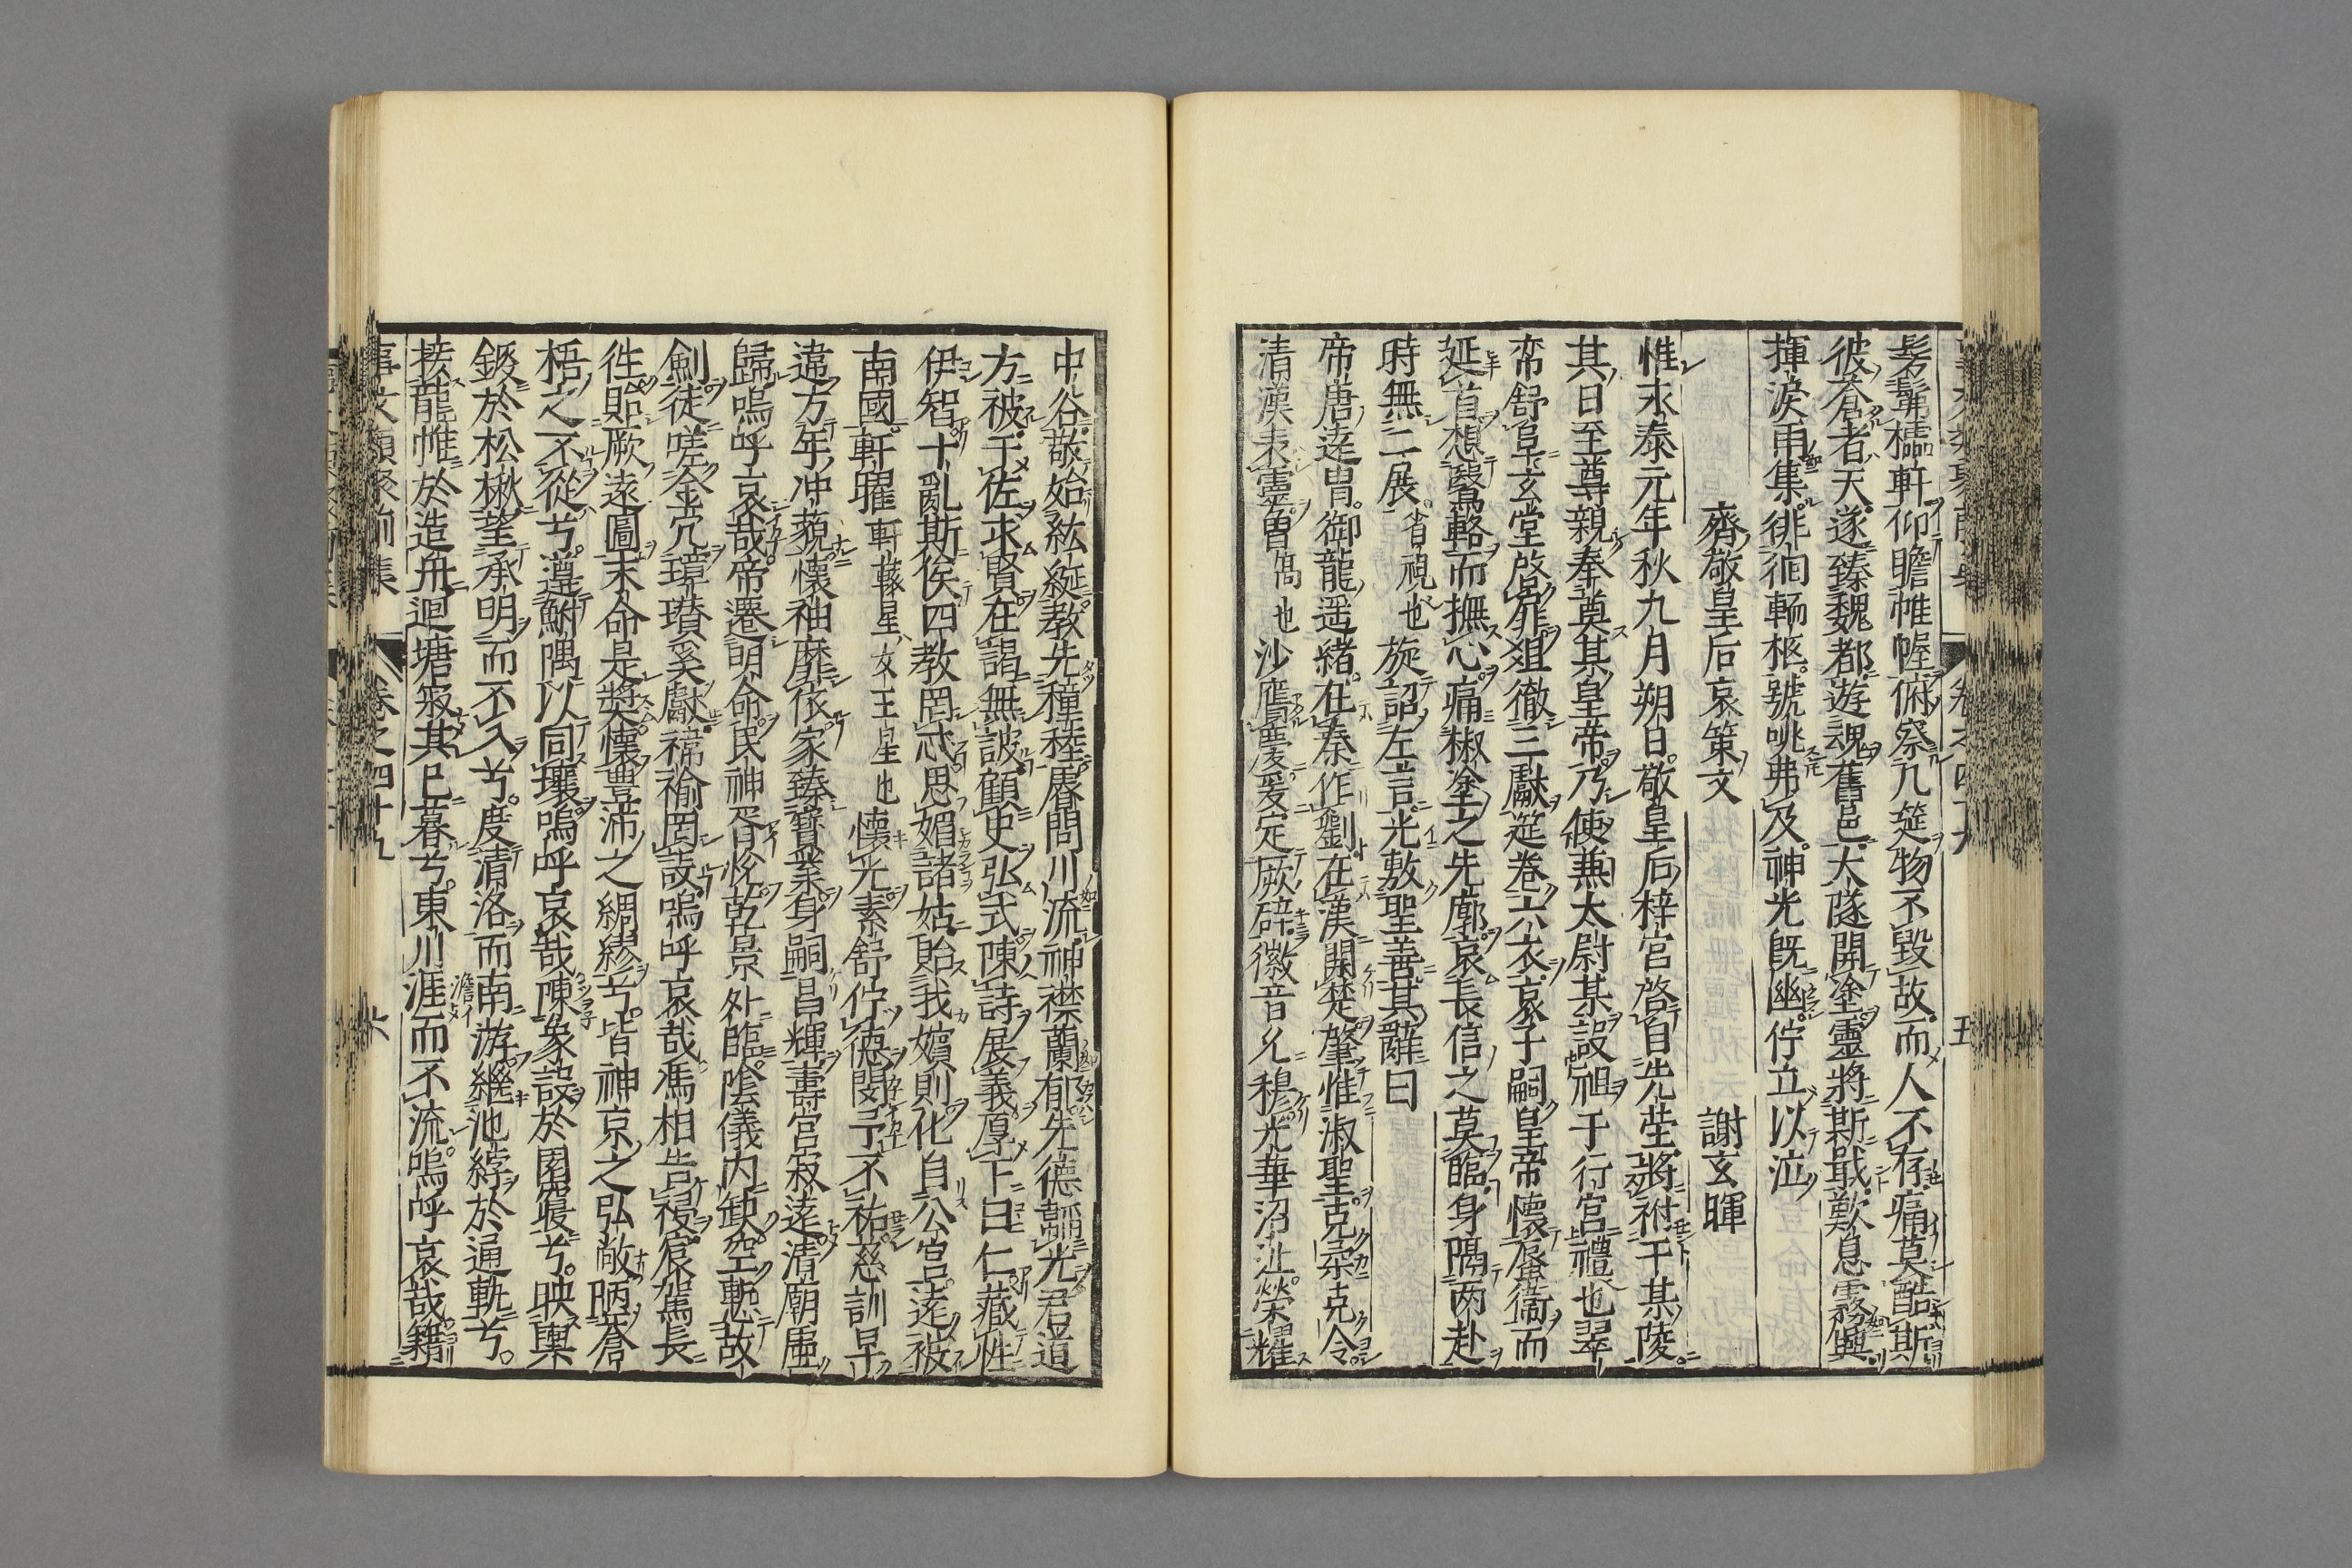 髣髴櫺軒仰瞻帷幄俯察几筵物不毀故而人不存痛莫酷斯
彼蒼者天遂臻魏都遊魂舊邑大隧開塗靈將斯戢歎息霧興
揮淚雨集徘徊輀柩號咷弗及神光既幽佇立以泣
齊敬皇后哀策文 謝玄暉
惟永泰元年秋九月朔日敬皇后梓宮啓自先塋將祔于某陵
其日至尊親奉奠其皇帝乃使兼太尉某設祖于行宮禮也翠
帟舒皇玄堂啓扉俎徹三獻筵卷六衣哀子嗣皇帝懷蜃衞而
延首想鷖輅而撫心痛椒塗之先廓哀長信之莫臨身隔兩赴
時無二展省視也旋詔左言光敷聖善其辭曰
帝唐遠胄御龍遥緒在秦作劉在漢開楚肇惟淑聖克柔克令
清漢表靈曾沙膺慶爰定厥祥徽音允穆光華沼沚榮耀
中谷敬始紘綖教先穜稑睿問川流神襟蘭郁先德韜光君道
方被于佐求賢在謁無詖顧史弘式陳詩展義厚下曰仁藏性
伊智十亂斯俟四教罔忒思媚諸姑貽我嬪則化自公宮遠被
南國軒曜軒轅星女主星也懷光素舒佇德閔予不祐慈訓早
違方年冲藐懷袖靡依家臻寶業身嗣昌輝壽宮寂遠清廟虛
歸嗚呼哀哉帝遷明命民神胥悅乾景外臨陰儀内缺空慙故
劍徒嗟金穴璋瓚奚獻褘褕罔設嗚呼哀哉馮相告祲宸駕長
往貽厥遠圖末命是奬懷豐沛之綢繆兮背神京之弘敞陋蒼
梧之不從兮遵鮒隅以同壤嗚呼哀哉陳象設於園寢兮映輿
鍐於松楸望承明而不入兮度清洛而南游繼池綍於通軌兮
接龍帷於造舟迴塘寂其已暮兮東川澹而不流嗚呼哀哉籍
事文類聚前集 卷之四十九 六